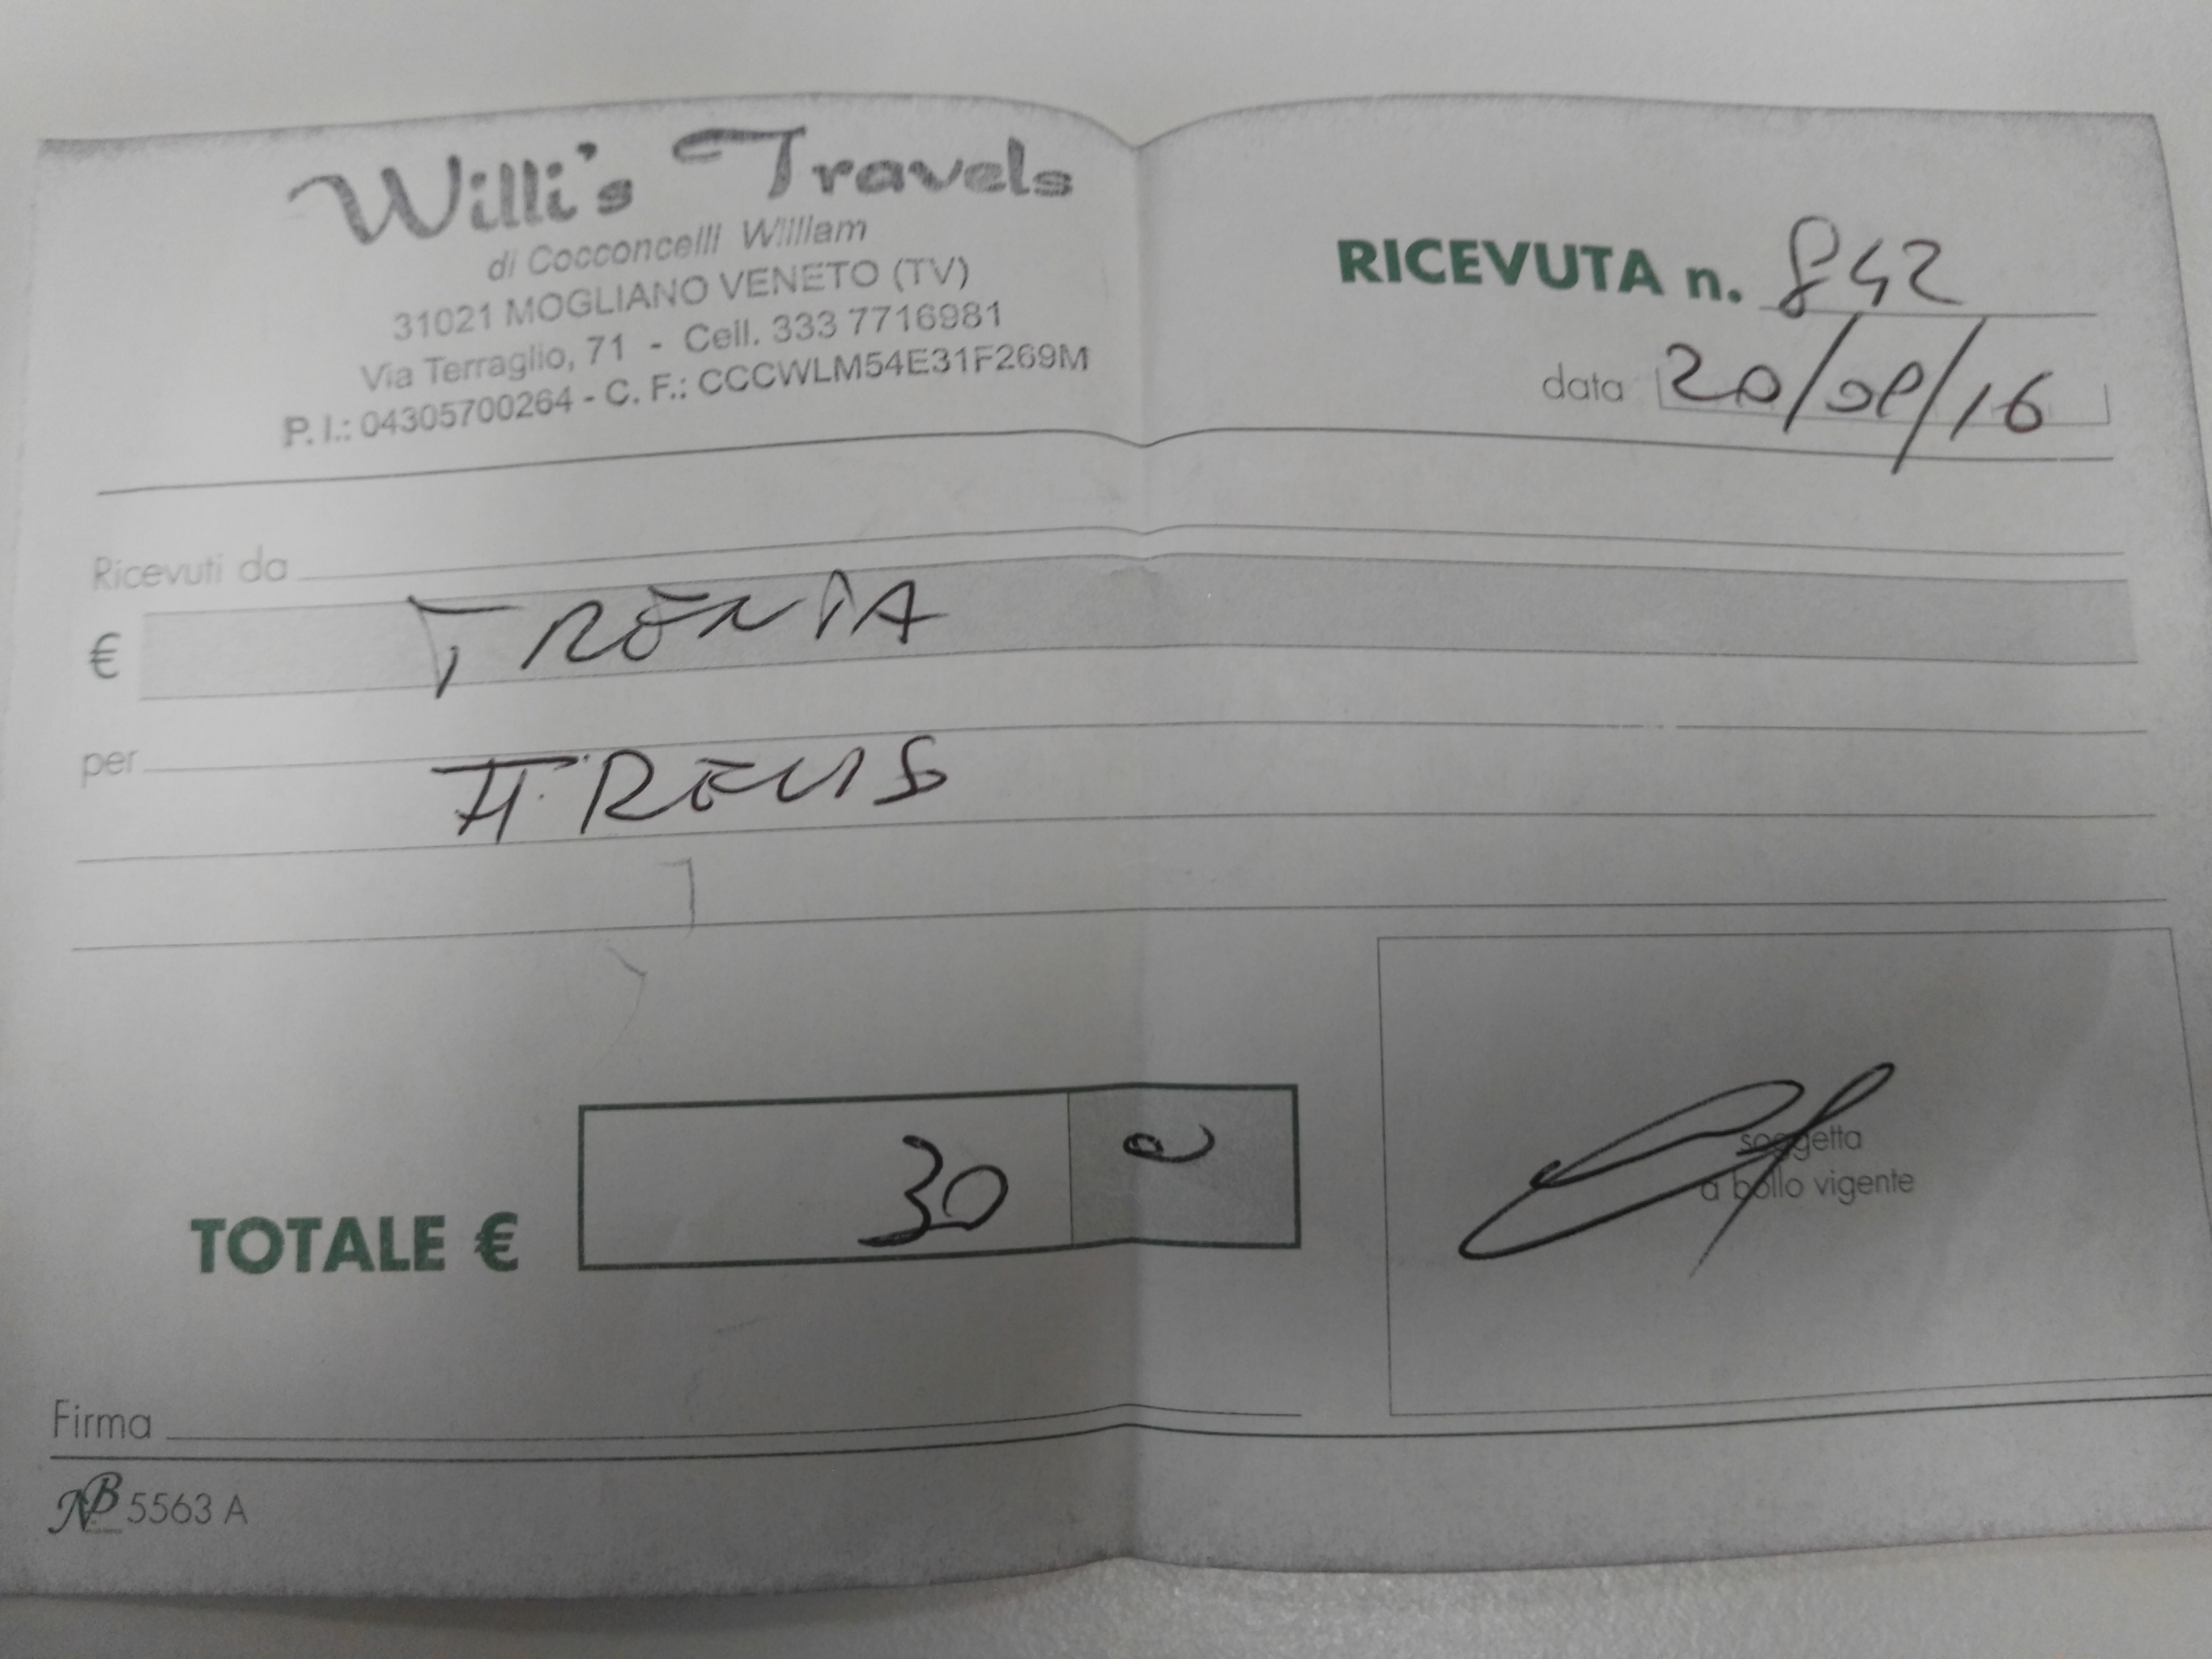 Willi's Travels
di Cocconcelli William
31021 MOGLIANO VENETO (TV)
Via Terraglio, 71 - Cell. 333 7716981
P. I.: 04305700264 - C. F.: CCCWLM54E31F269M
RICEVUTA n. 842
data 20/09/16
Ricevuti da
€ TRENTA
per
TOTALE € 30
soggetta
a bollo vigente
Firma
NB 5563 A